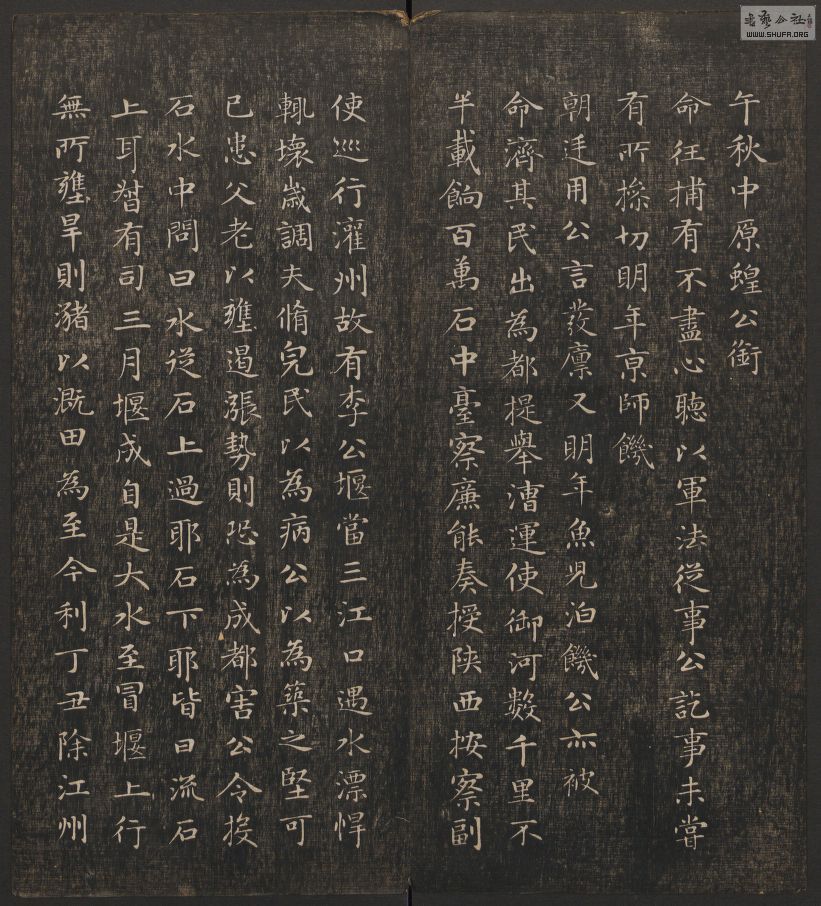 午秋中原蝗公銜
命往捕有不盡心聽以軍法從事公訖事未嘗
有所捺切明年京師饑
朝廷用公言發廩又明年魚児泊饑公亦被
命濟其民出為都提舉漕運使御河數千里不
半載餉百萬石中臺察廉能奏授陝西按察副
使巡行灌州故有李公堰當三江口遇水漂悍
輒壞歲調夫脩完民以為病公以為築之堅可
已患父老以壅遏漲勢則恐為成都害公令投
石水中問曰水從石上過耶石下耶皆曰流石
上耳督有司三月堰成自是大水至冒堰上行
無所壅旱則瀦以溉田為至今利丁丑除江州
書藝公社
WWW.SHUFA.ORG